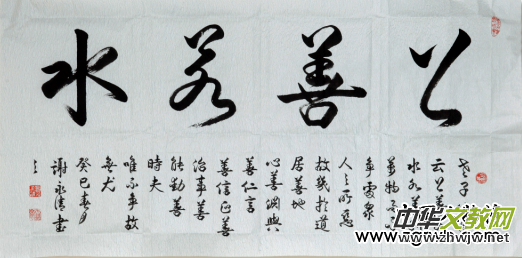 上善若水
老子
云上善
水水善
萬物
争處衆
人之所惡
故幾於道
居善地
心善渊與
善仁言
善信正善
治事善
能動善
時夫
唯不争故
無尤
癸巳春月
謝永清書
中华文教网
www.zhwjw.net